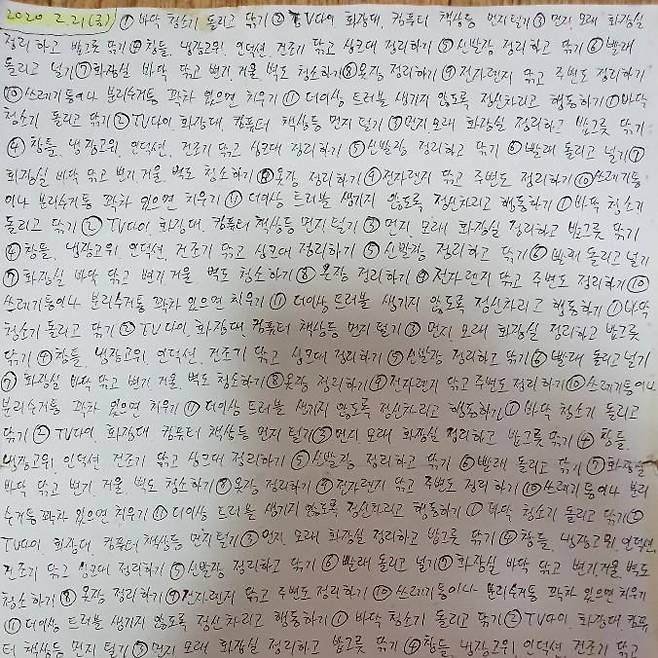 2020 2.21(금) ① 바닥 청소기 돌리고 닦기 ② TV다이 화장대, 컴퓨터 책상등 먼지 털기 ③ 먼지, 모래 화장실
정리하고 밥그릇 닦기 ④ 창틀, 냉장고위, 인덕션, 건조기 닦고 싱크대 정리하기 ⑤ 신발장 정리하고 닦기 ⑥ 빨래
돌리고 널기 ⑦ 화장실 바닥 닦고 변기, 거울 벽도 청소하기 ⑧ 옷장 정리하기 ⑨ 전자렌지 닦고 주변도 정리하기
⑩ 쓰레기통이나 분리수거통 꽉차 있으면 치우기 ⑪ 더이상 트러블 생기지 않도록 정신차리고 행동하기 ① 바닥
청소기 돌리고 닦기 ② TV다이, 화장대, 컴퓨터 책상등 먼지 털기 ③ 먼지, 모래 화장실 정리하고 밥그릇 닦기
④ 창틀, 냉장고위, 인덕션, 건조기 닦고 싱크대 정리하기 ⑤ 신발장 정리하고 닦기 ⑥ 빨래 돌리고 널기 ⑦
화장실 바닥 닦고 변기 거울 벽도 청소하기 ⑧ 옷장 정리하기 ⑨ 전자렌지 닦고 주변도 정리하기 ⑩ 쓰레기통
이나 분리수거통 꽉차 있으면 치우기 ⑪ 더이상 트러블 생기지 않도록 정신차리고 행동하기 ① 바닥 청소기
돌리고 닦기 ② TV다이, 화장대, 컴퓨터 책상등 먼지 털기 ③ 먼지, 모래 화장실 정리하고 밥그릇 닦기
④ 창틀, 냉장고위, 인덕션, 건조기 닦고 싱크대 정리하기 ⑤ 신발장 정리하고 닦기 ⑥ 빨래 돌리고 널기
⑦ 화장실 바닥 닦고 변기 거울 벽도 청소하기 ⑧ 옷장 정리하기 ⑨ 전자렌지 닦고 주변도 정리하기 ⑩
쓰레기통이나 분리수거통 꽉차 있으면 치우기 ⑪ 더이상 트러블 생기지 않도록 정신차리고 행동하기 ① 바닥
청소기 돌리고 닦기 ② TV다이, 화장대, 컴퓨터 책상등 먼지 털기 ③ 먼지, 모래 화장실 정리하고 밥그릇
닦기 ④ 창틀, 냉장고위, 인덕션, 건조기 닦고 싱크대 정리하기 ⑤ 신발장 정리하고 닦기 ⑥ 빨래 돌리고 널기
⑦ 화장실 바닥 닦고 변기 거울, 벽도 청소하기 ⑧ 옷장 정리하기 ⑨ 전자렌지 닦고 주변도 정리하기 ⑩ 쓰레기통이나
분리수거통 꽉차 있으면 치우기 ⑪ 더이상 트러블 생기지 않도록 정신차리고 행동하기 ① 바닥 청소기 돌리고
닦기 ② TV다이, 화장대 컴퓨터 책상등 먼지 털기 ③ 먼지 모래 화장실 정리하고 밥그릇 닦기 ④ 창틀,
냉장고위, 인덕션 건조기 닦고 싱크대 정리하기 ⑤ 신발장 정리하고 닦기 ⑥ 빨래 돌리고 널기 ⑦ 화장실
바닥 닦고 변기, 거울 벽도 청소하기 ⑧ 옷장 정리하기 ⑨ 전자렌지 닦고 주변도 정리하기 ⑩ 쓰레기통이나 분리
수거통 꽉차 있으면 치우기 ⑪ 더이상 트러블 생기지 않도록 정신차리고 행동하기 ① 바닥 청소기 돌리고 닦기 ②
TV다이, 화장대, 컴퓨터 책상등 먼지 털기 ③ 먼지, 모래 화장실 정리하고 밥그릇 닦기 ④ 창틀, 냉장고위, 인덕션,
건조기 닦고 싱크대 정리하기 ⑤ 신발장 정리하고 닦기 ⑥ 빨래 돌리고 널기 ⑦ 화장실 바닥 닦고 변기, 거울, 벽도
청소하기 ⑧ 옷장 정리하기 ⑨ 전자렌지 닦고 주변도 정리하기 ⑩ 쓰레기통이나 분리수거통 꽉차 있으면 치우기
⑪ 더이상 트러블 생기지 않도록 정신차리고 행동하기 ① 바닥 청소기 돌리고 닦기 ② TV다이, 화장대, 컴퓨
터 책상등 먼지 털기 ③ 먼지 모래 화장실 정리하고 밥그릇 닦기 ④ 창틀, 냉장고위, 인덕션 건조기 닦고